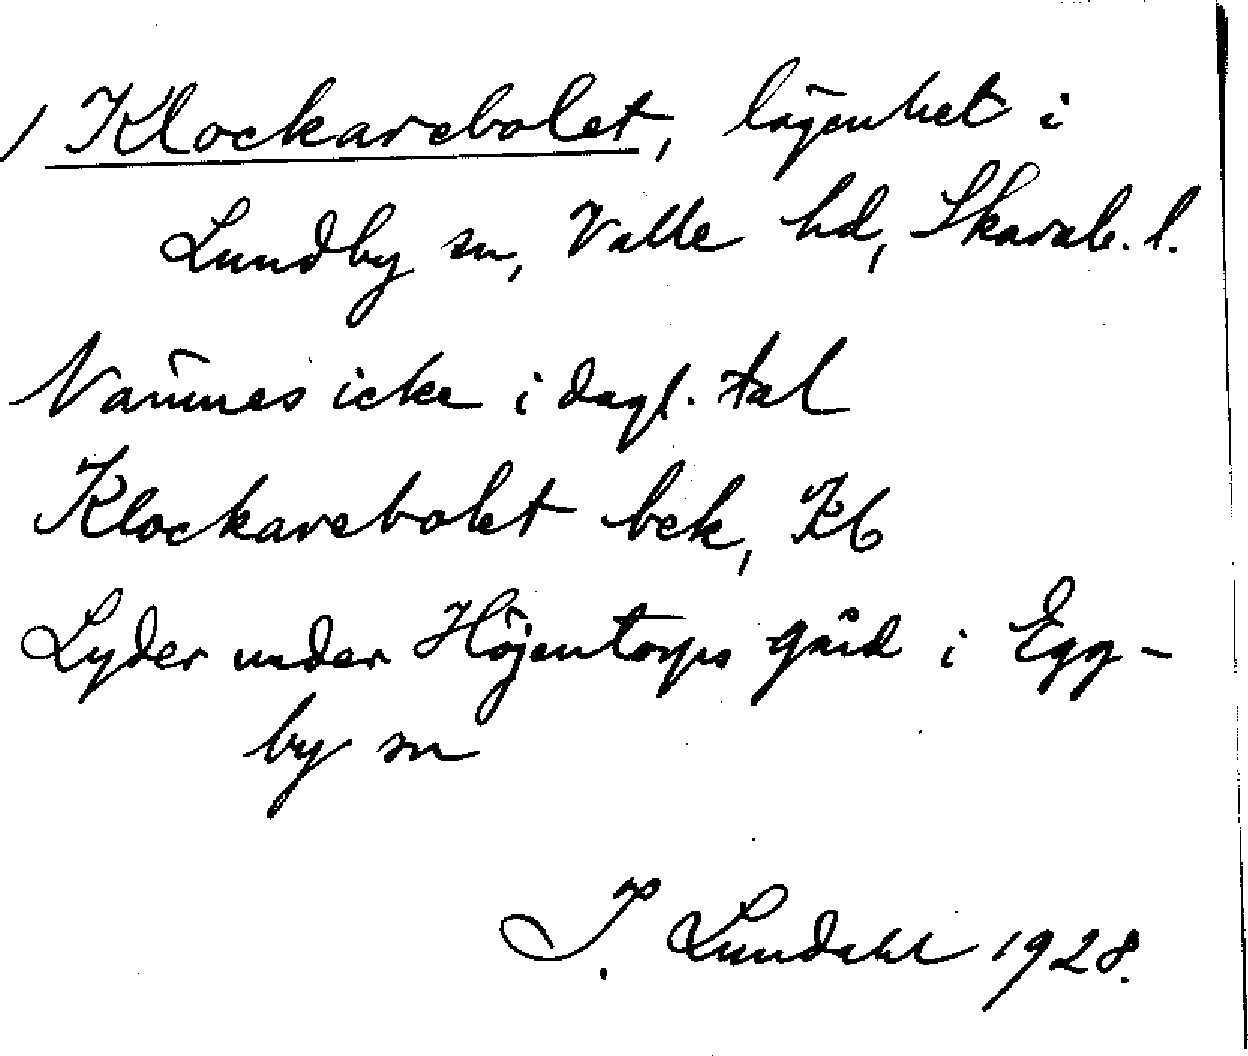 / Klockarebolet, lägenhet i
Lundby sn, Valle hd, Skarab. l.
Nämnes icke i dagl. tal
Klockarebolet bek, Kb
Lyder under Höjentorps gård i Egg-
by sn
I. Lundahl 1928.